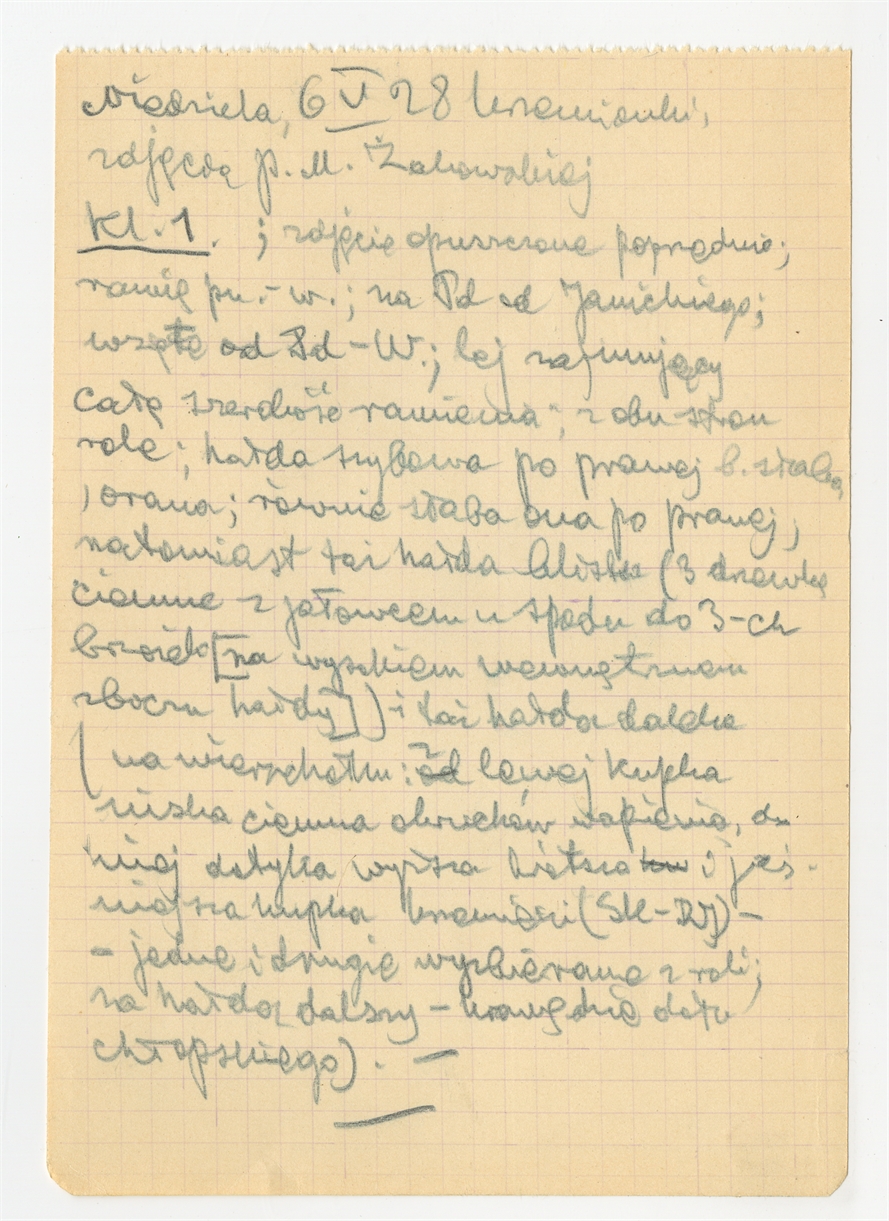 Niedziela, 6 V 28 Krzemionki,
zdjęcia p. M. Żakowskiej
Kl. 1. ; zdjęcie opuszczone poprzednio;
ramię pn.-w.; na Pd od Janickiego;
wzięte od Pd-W.; lej zajmujący
całą szerokość ramienia; z obu stron
role; hałda szybowa po prawej b. słaba,
orana; równie słaba ona po prawej,
natomiast taż hałda bliska (3 drzewka
ciemne z jałowcem u spodu do 3-ch
brzózek [na wysokiem wewnętrznem
zboczu hałdy]) i taż hałda daleka
(na wierzchołku: z lewej kupka
niska ciemna okruchów wapienia, do
niej dotyka wyższa bielsza i jaś-
niejsza kupka krzemieni (SK-RJ) -
- jedne i drugie wyzbierane z roli;
za hałdą dalszy - krawędzie dołu
chłopskiego). -